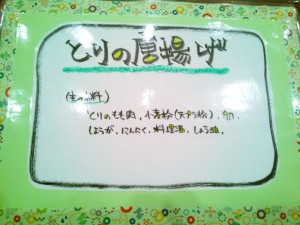 とりの唐揚げ
(主な材料)
とりのもも肉、小麦粉(天ぷら粉)、卵、
しょうが、にんにく、料理酒、しょう油、